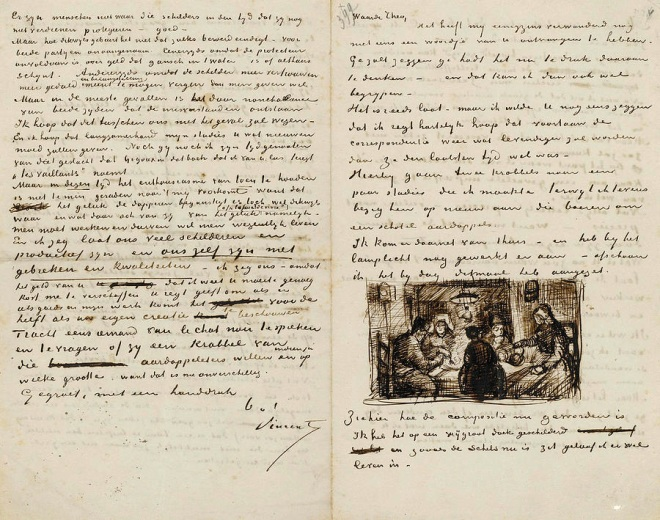 Er zyn menschen niet waar die schilders in den tyd dat zy nog
niet verdienen protegeren — goed —
Maar hoe dikwyls gebeurt het niet dat zoiets
beide partyen onaangenaam. Eenerzyds omdat de protecteur
onvoldaan is over geld dat in 't water is of althans
schynt. Anderzyds omdat de schilder meer vertrouwen
meer geduld
Maar in de meeste gevallen is het door nonchalance
van beide zyden dat de misverstanden ontstaan.
Ik hoop dat dit tusschen ons niet het geval zal wezen —
En ik hoop dat langzamerhand myn studies U wat nieuwen
moed zullen geven. Noch gy noch ik zyn tydgenooten
van dat geslacht dat Gigoux in dat boek dat ik van U las terecht
"les Vaillants" noemt
Maar in dezen tyd het enthousiasme van toen te houden
is niettemin geraden naar 't my voorkomt want dat
het geluk de dapperen begunstigt is toch wel dikwyls
waar en wat daar ook van zy van het geluk namelyk —
men moet werken en durven wil men wezenlyk leven
En ik zeg laat ons veel schilderen en
productief zyn en ons zelf zyn met
gebreken en kwaliteiten — ik zeg ons — omdat
het geld van U dat het U moeite genoeg
kost me te verschaffen U regt geeft om als er
als goeds in myn werk komt het voor de
helft als eigen creatie te beschouwen
Tracht eens iemand van le chat noir te spreken
en te vragen of zy een krabbel van
die aardappeleters willen en op
welke grootte, want dat is me onverschillig.
Gegroet, met een handdruk
b. à t.
Vincent
Waarde Theo,
Het heeft my eenigzins verwonderd nog
niet eens een woordje van U ontvangen te hebben.
Ge zult zeggen ge hadt het nu te druk daaraan
te denken — en dat kan ik dan ook wel
begrypen —
Het is reeds laat — maar ik wilde U nog eens zeggen
dat ik regt hartelyk hoop dat voortaan de
correspondentie weer wat levendiger zal worden
dan ze den laatsten tyd wel was —
Hierby gaan twee krabbels naar een
paar studies die ik maakte terwyl ik tevens
bezig ben op nieuw aan die boeren om
een schotel aardappels.
Ik kom er daarnet van thuis — en heb by het
lamplicht nog gewerkt er aan — ofschoon
ik het by dag ditmaal heb aangezet.
Ziehier hoe de compositie nu geworden is
Ik heb het op een vry groot doek geschilderd
en zooals de schets nu is zit geloof ik er wel
leven in —